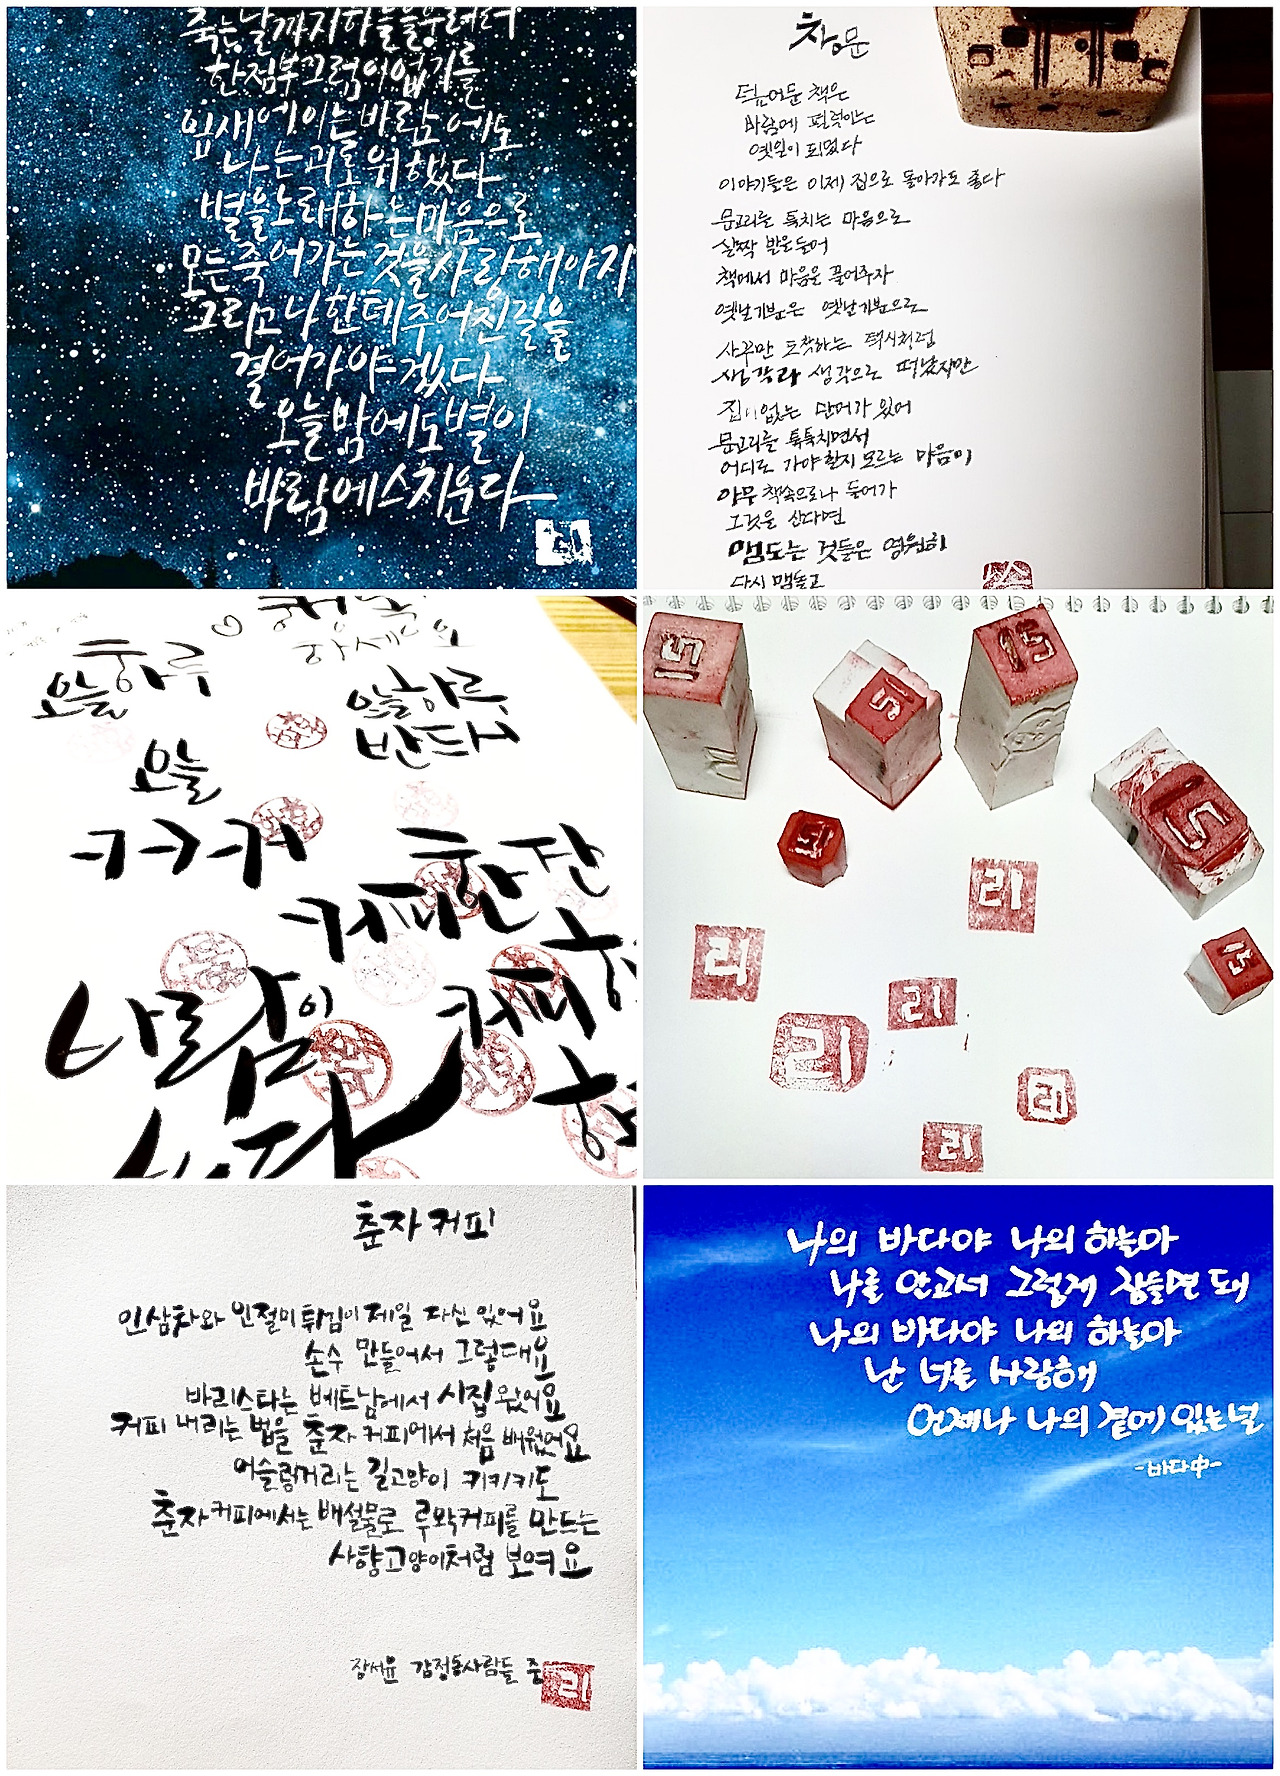 죽는날까지하늘을우러러
한점부끄럼이없기를
잎새에이는바람에도
나는괴로워했다
별을노래하는마음으로
모든죽어가는것을사랑해야지
그리고나한테주어진길을
걸어가야겠다
오늘밤에도별이
바람에스치운다
리
창문
덮어둔 책은
바람에 펄럭이는
옛일이 되었다
이야기들은 이제 집으로 돌아가도 좋다
문고리를 툭치는 마음으로
살짝 발을들어
책에서 마음을 꺼어주자
옛날기분은 옛날기분으로
사꾸만 도착하는 택시처럼
생각과 생각으로 떠났지만
집이없는 단어가 있어
문고리를 툭툭치면서
어디로 가야할지 모르는 마음이
아무 책속으로나 들어가
그것을 산다면
맴도는 것들은 영원히
다시 맴돌고
하세요
오늘하루
오늘하루
반드시
오늘
커커커
커피한잔
바람이
커피
리
리
리
리
리
리
춘자커피
인삼차와 인절미튀김이제일 자신 있어요
손수 만들어서 그렇대요
바리스타는 베트남에서 시집왔어요
커피 내리는 법을 춘자커피에서 처음 배웠어요
어슬렁거리는 길고양이 키키키도
춘자커피에서는 배설물로 루왁커피를 만드는
사향고양이처럼 보여요
장서윤 감정동사람들 중
리
나의 바다야 나의 하늘아
나를 안고서 그렇게 잠들면 돼
나의 바다야 나의 하늘아
난 너를 사랑해
언제나 나의 곁에 있는널
-바다中-